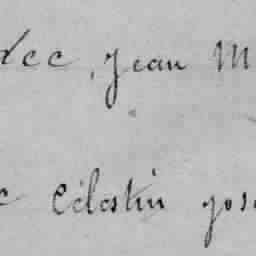 Jean M
Célestin jos